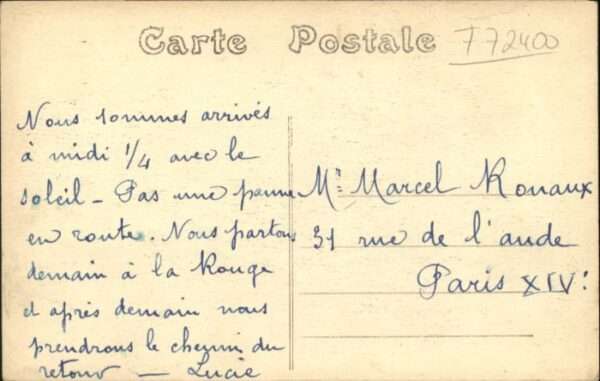 Carte Postale
T72400
Nous sommes arrivés
à midi 1/4 avec le
soleil - Pas une panne
en route. Nous partons
demain à la Rouge
et après demain nous
prendrons le chemin du
retour - Lucie
Mr Marcel Rouaux
31 rue de l'aude
Paris XIV!